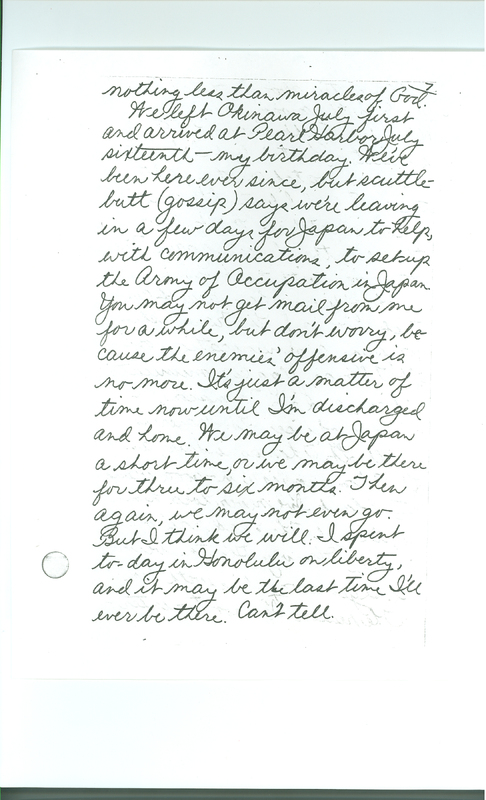 nothing less than miracles of God.
We left Okinawa July first
and arrived at Pearl Harbor July
sixteenth - my birthday. We've
been here ever since, but scuttle-
butt (gossip) says we're leaving
in a few days for Japan to help,
with communications, to set-up
the Army of Occupation in Japan.
You may not get mail from me
for a while, but don't worry, be-
cause the enemies' offensive is
no more. It's just a matter of
time now until I'm discharged
and home. We may be at Japan
a short time, or we may be there
for three to six months. Then
again, we may not even go.
But I think we will. I spent
to-day in Honolulu on liberty,
and it may be the last time I'll
ever be there. Can't tell.